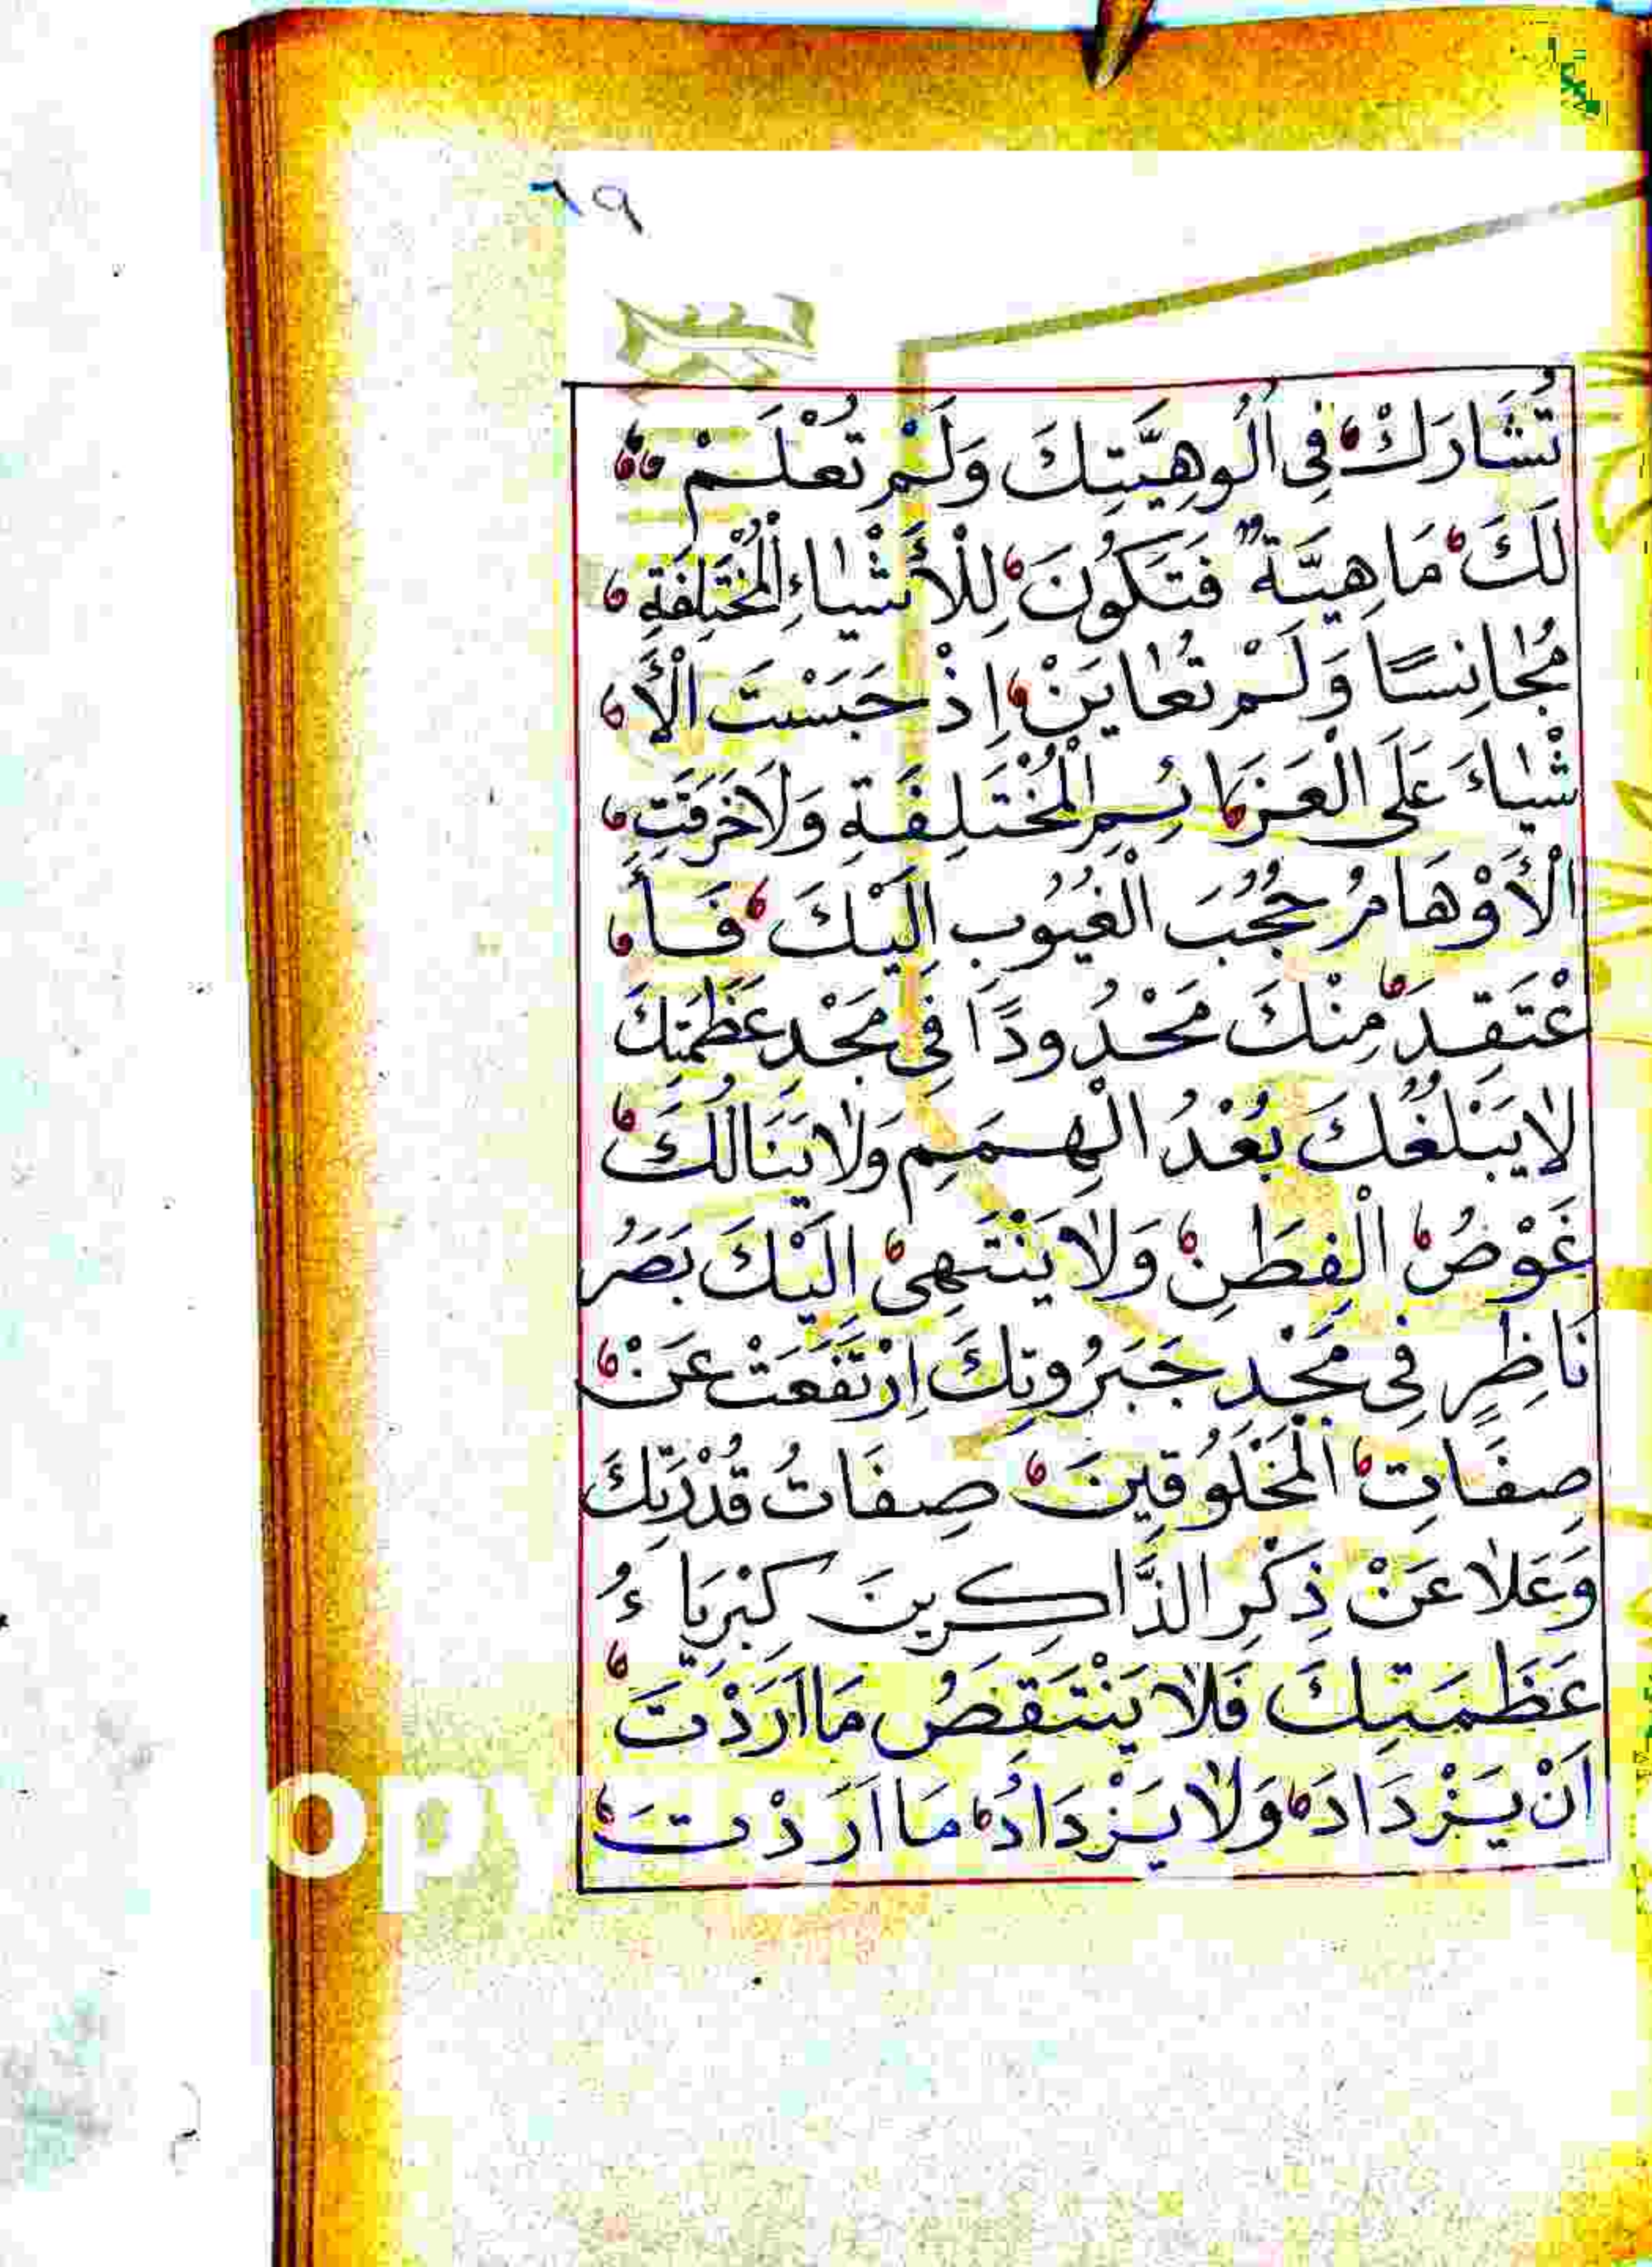 ٦٩
تُشَارَكْ فِى اُلُوهِيَّتِكَ وَلَمْ تُعْلَمْ
لَكَ مَاهِيَّةٌ فَتَكُونَ لِلْأَشْيَاءِ الْمُخْتَلِفَةِ
مُجَانِسًا وَلَمْ تُعَايَنْ اِذْ حَبَسْتَ الْأَ
شْيَاءَ عَلَى الْعَزَائِمِ الْمُخْتَلِفَةِ وَلَاخَرَقَتِ
الْأَوْهَامُ حُجُبَ الْغُيُوبِ اِلَيْكَ فَأَ
عْتَقِدَ مِنْكَ مَحْدُودًا فِى مَجْدِ عَظَمَتِكَ
لَايَبْلُغُكَ بُعْدُ الْهِمَمِ وَلَايَنَالُكَ
غَوْصُ الْفِطَنِ وَلَايَنْتَهِىْ اِلَيْكَ بَصَرُ
نَاظِرٍ فِى مَجْدِ جَبَرُوتِكَ اِرْتَفَعَتْ عَنْ
صِفَاتِ الْمَخْلُوقِينَ صِفَاتُ قُدْرَتِكَ
وَعَلَا عَنْ ذِكْرِ الذَّاكِرِينَ كِبْرِيَاءُ
عَظَمَتِكَ فَلَا يَنْتَقِصُ مَااَرَدْتَ
اَنْ يَزْدَادَ وَلَا يَزْدَادُ مَااَرَدْتَ
opy